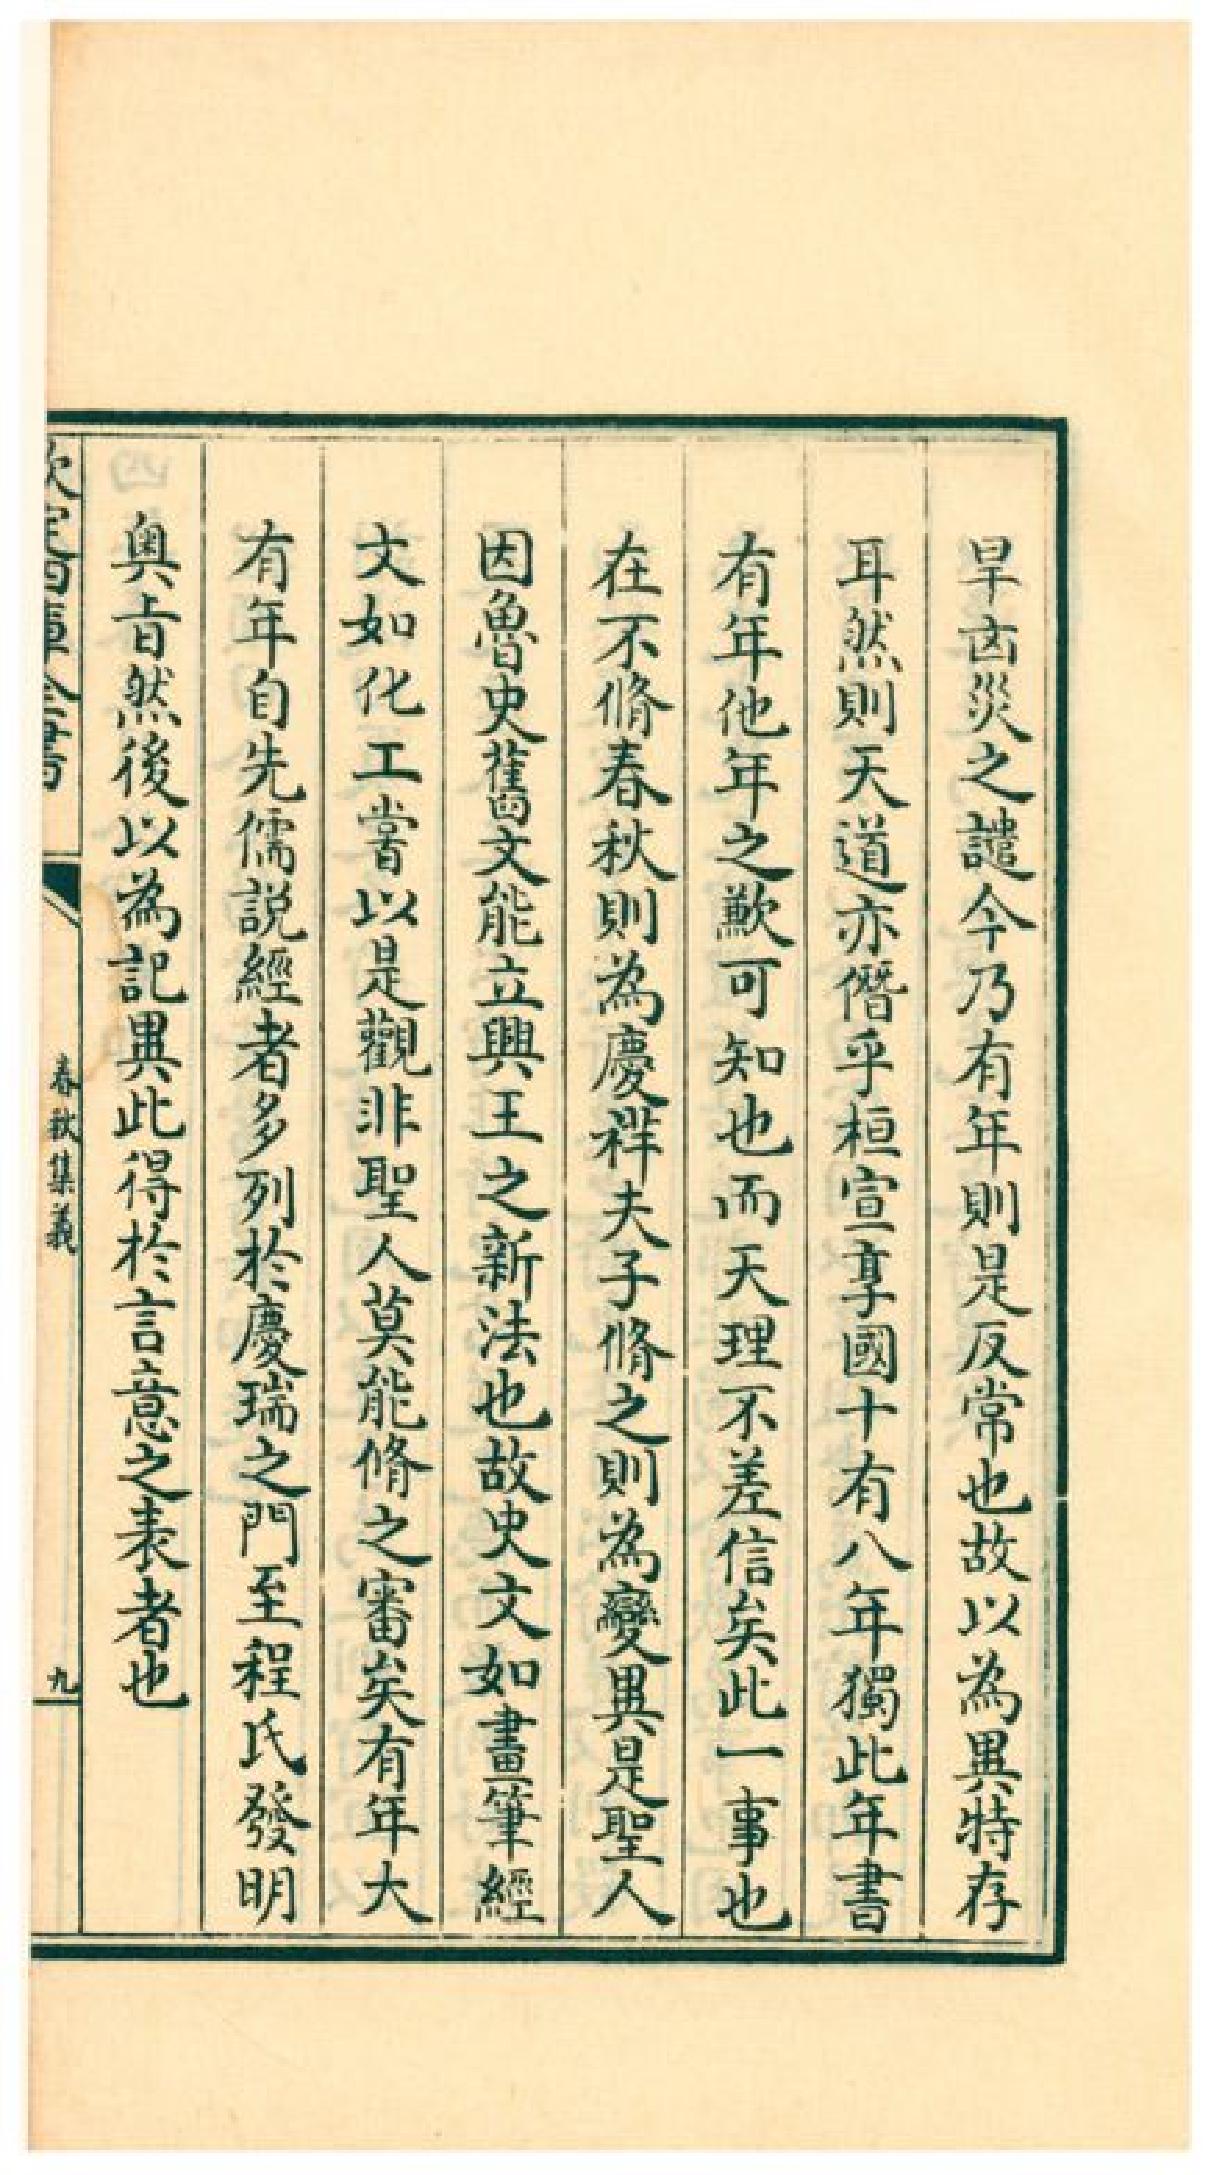 旱㐫災之譴今乃有年則是反常也故以為異特存
耳然則天道亦僭乎桓宣享國十有八年獨此年書
有年他年之歉可知也而天理不差信矣此一事也
在不脩春秋則為慶祥夫子脩之則為變異是聖人
因魯史舊文能立興王之新法也故史文如畫筆經
文如化工嘗以是觀非聖人莫能脩之審矣有年大
有年自先儒説經者多列於慶瑞之門至程氏發明
奥㫖然後以為記異此得於言意之表者也
欽定四庫全書
春秋集義
九